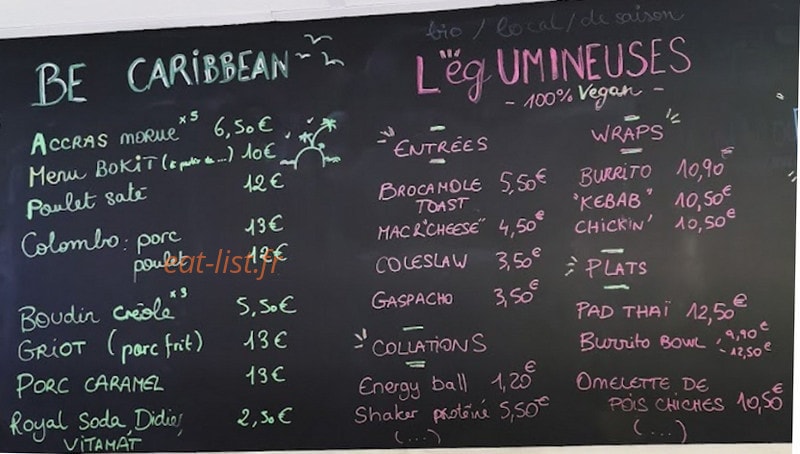 BE CARIBBEAN
ACCRAS MORUE x5 6,50€
Menu BOKIT 10€
Poulet saté 12€
Colombo : porc 13€
poulet 12€
eat-list.fr
Boudin créole x3 5,50€
GRIOT (porc frit) 13€
PORC CARAMEL 13€
Royal Soda, Didier, 2,50€
VITAMAT
bio / local / de saison
LégUMINEUSES
- 100% Vegan -
ENTRÉES
BROCAMOLE 5,50€
TOAST
MAC R"CHEESE" 4,50€
COLESLAW 3,50€
GASPACHO 3,50€
COLLATIONS
Energy ball 1,20€
Shaker protéiné 5,50€
(...)
WRAPS
BURRITO 10,90€
"KEBAB" 10,50€
CHICKIN' 10,50€
PLATS
PAD THAÏ 12,50€
Burrito BOWL 9,90€
- 12,50€
OMELETTE DE
POIS CHICHES 10,50€
(...)